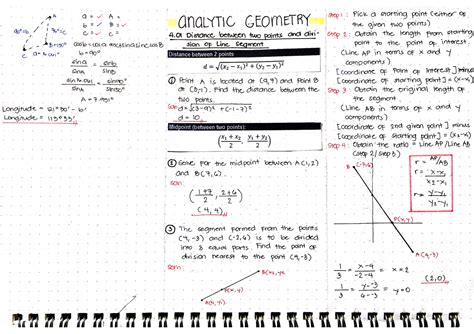 a = ✓ A = ✓
b = ✓ B = ✓
c = ✓ C = ✓
B = 90°
sin A
sin B
A = 7.901°
Longitude = 121°30' -
Longitude = 113°35'
ANALYTIC GEOMETRY
4.01 Distance between two points and divi-
sion of Line Segment
Distance between 2 points
d = √(x₂ - x₁)² + (y₂ - y₁)²
① Point A is located at (9,7) and Point B
at (3,-1). Find the distance between the
two points.
d = √(3-9)² + (-1-7)²
d = 10
Midpoint (between two points):
(x₁ + x₂ / 2, y₁ + y₂ / 2)
② Solve for the midpoint between A(1,2)
and B(7,6).
soln:
(1+7 / 2, 2+6 / 2)
(4, 4)
③ The segment formed from the points
(4,-3) and (-2,6) is to be divided
into 3 equal parts. Find the point of
division nearest to the point (4,-3)
soln:
B(x₂, y₂)
P(x,y)
A(x₁, y₁)
Step 1: Pick a starting point (either of
the given two points)
Step 2: Obtain the length from starting
point to the point of interest
(Line AP in terms of x and y
components)
[coordinate of Point of interest] minus
[coordinate of starting point]
Step 3: Obtain the original length of
the segment.
(Line AB in terms of x and y
components)
[coordinate of 2nd given point] minus
[coordinate of starting point]
Step 4: Obtain the ratio = Line AP / Line AB
(step 2 / step 3)
r = AP/AB
r = x - x₁ / x₂ - x₁
r = y - y₁ / y₂ - y₁
P(x,y)
A(4,-3)
1/3 = x-4 / -2-4 = x = 2
1/3 = y--3 / 6--3 = y = 0
(2,0)